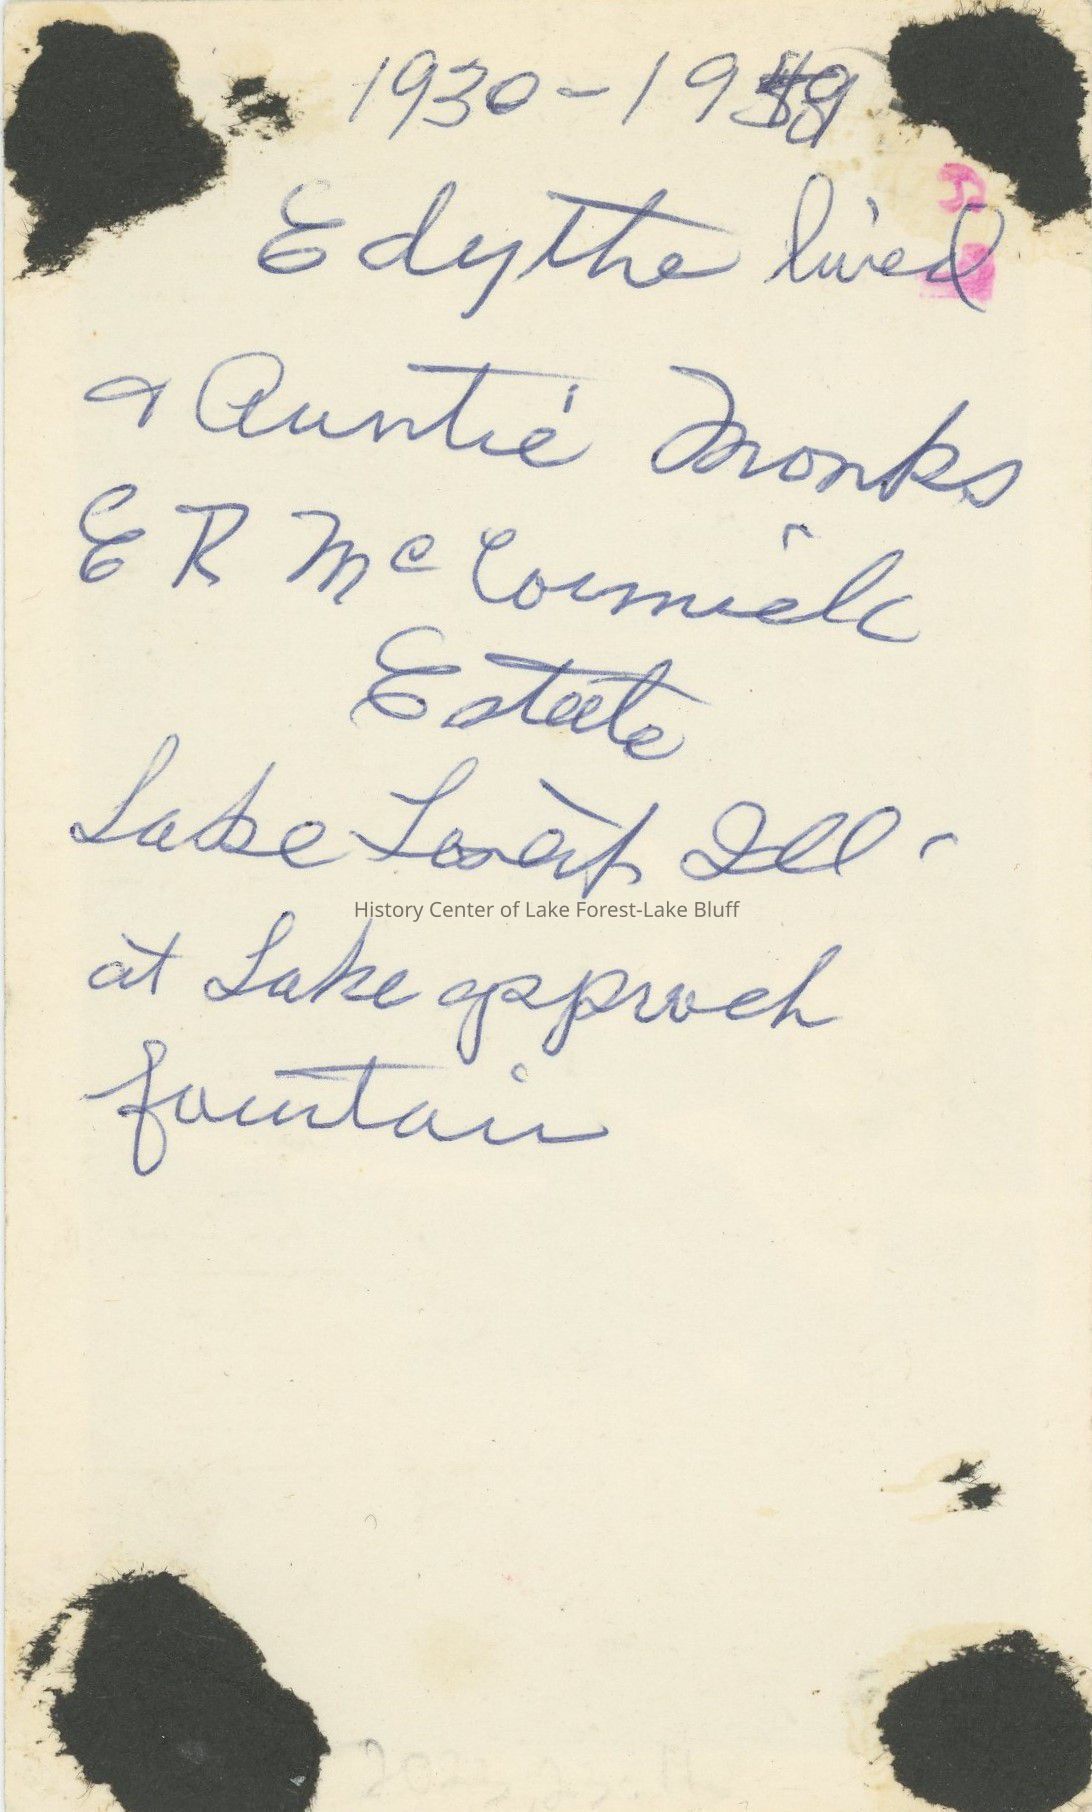 1930-1959
Edythe lived
& Auntie Monks
E R McCormick
Estate
Lake Forest Ill.
History Center of Lake Forest-Lake Bluff
at Lake approch
fountain